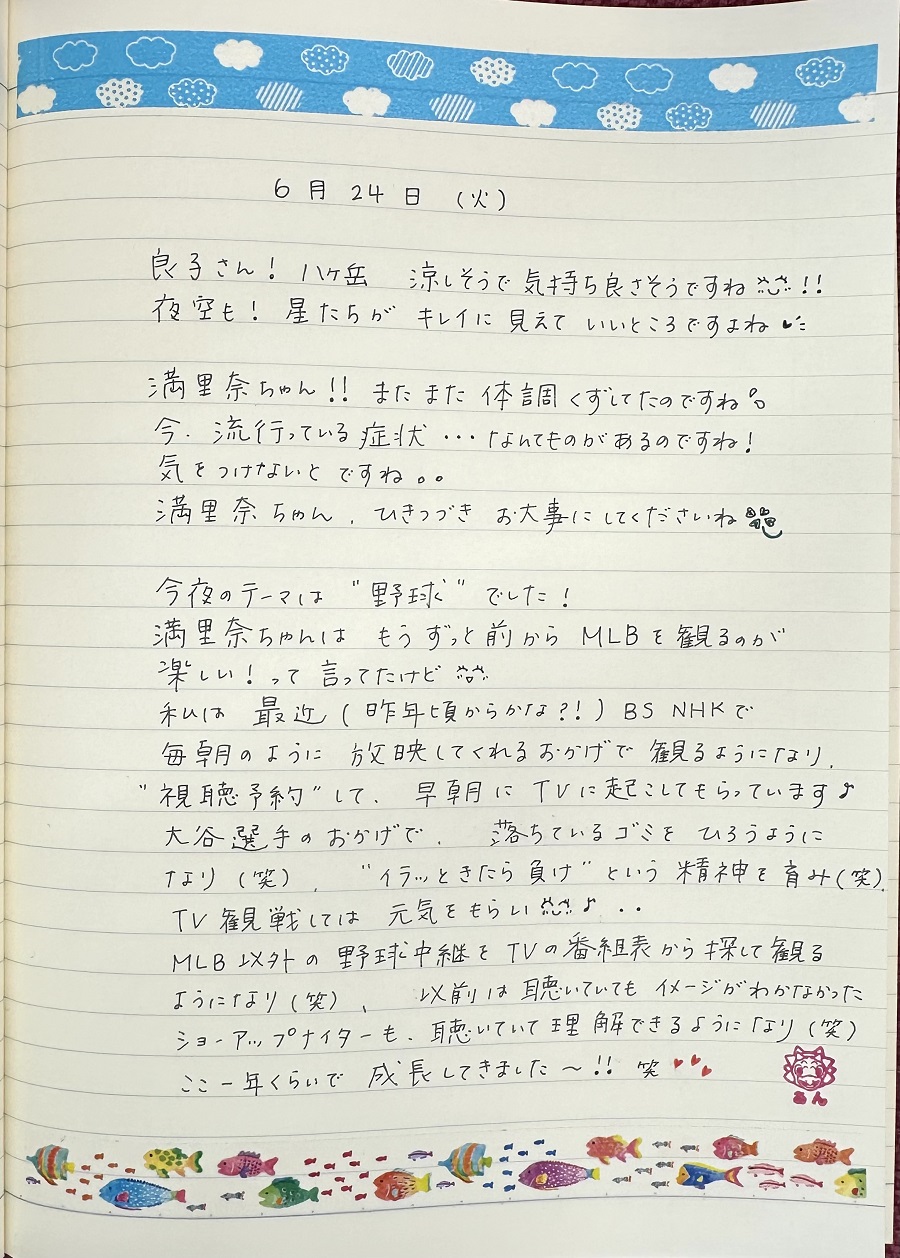 6月24日（火）
良子さん！ 八ヶ岳 涼しそうで気持ち良さそうですね!!
夜空も！ 星たちが キレイに 見えて いいところですよね
満里奈ちゃん!! またまた 体調くずしてたのですね
今、流行っている症状・・・なんてものがあるのですね！
気をつけないと ですね。。
満里奈ちゃん、ひきつづき お大事にしてくださいね
今夜のテーマは "野球" でした！
満里奈ちゃんは もうずっと前から MLBを観るのが
楽しい！って 言ってたけど
私は 最近（昨年頃からかな?!）BS NHKで
毎朝のように 放映してくれるおかげで 観るようになり、
"視聴予約"して、 早朝に TVに起こしてもらっています♪
大谷選手のおかげで、 落ちているゴミを ひろうように
なり（笑）、 "イラッときたら負け" という 精神を育み（笑）、
TV観戦しては 元気をもらい♪・・
MLB以外の 野球中継を TVの番組表から探して観る
ようになり（笑）、 以前は 聴いていても イメージがわかなかった
ショーアップナイターも、聴いていて理解できるようになり（笑）
ここ一年くらいで 成長してきました〜!! 笑
るん